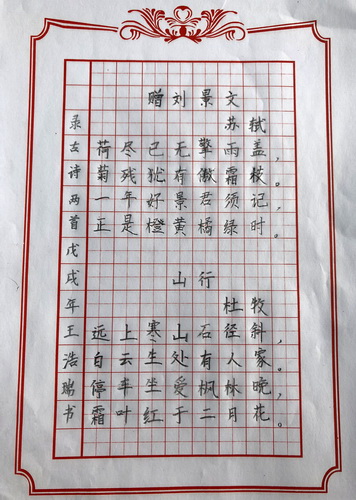 赠刘景文
苏轼
荷尽已无擎雨盖，
菊残犹有傲霜枝。
一年好景君须记，
正是橙黄橘绿时。
山行
杜牧
远上寒山石径斜，
白云生处有人家。
停车坐爱枫林晚，
霜叶红于二月花。
录古诗两首戊戌年王浩瑞书